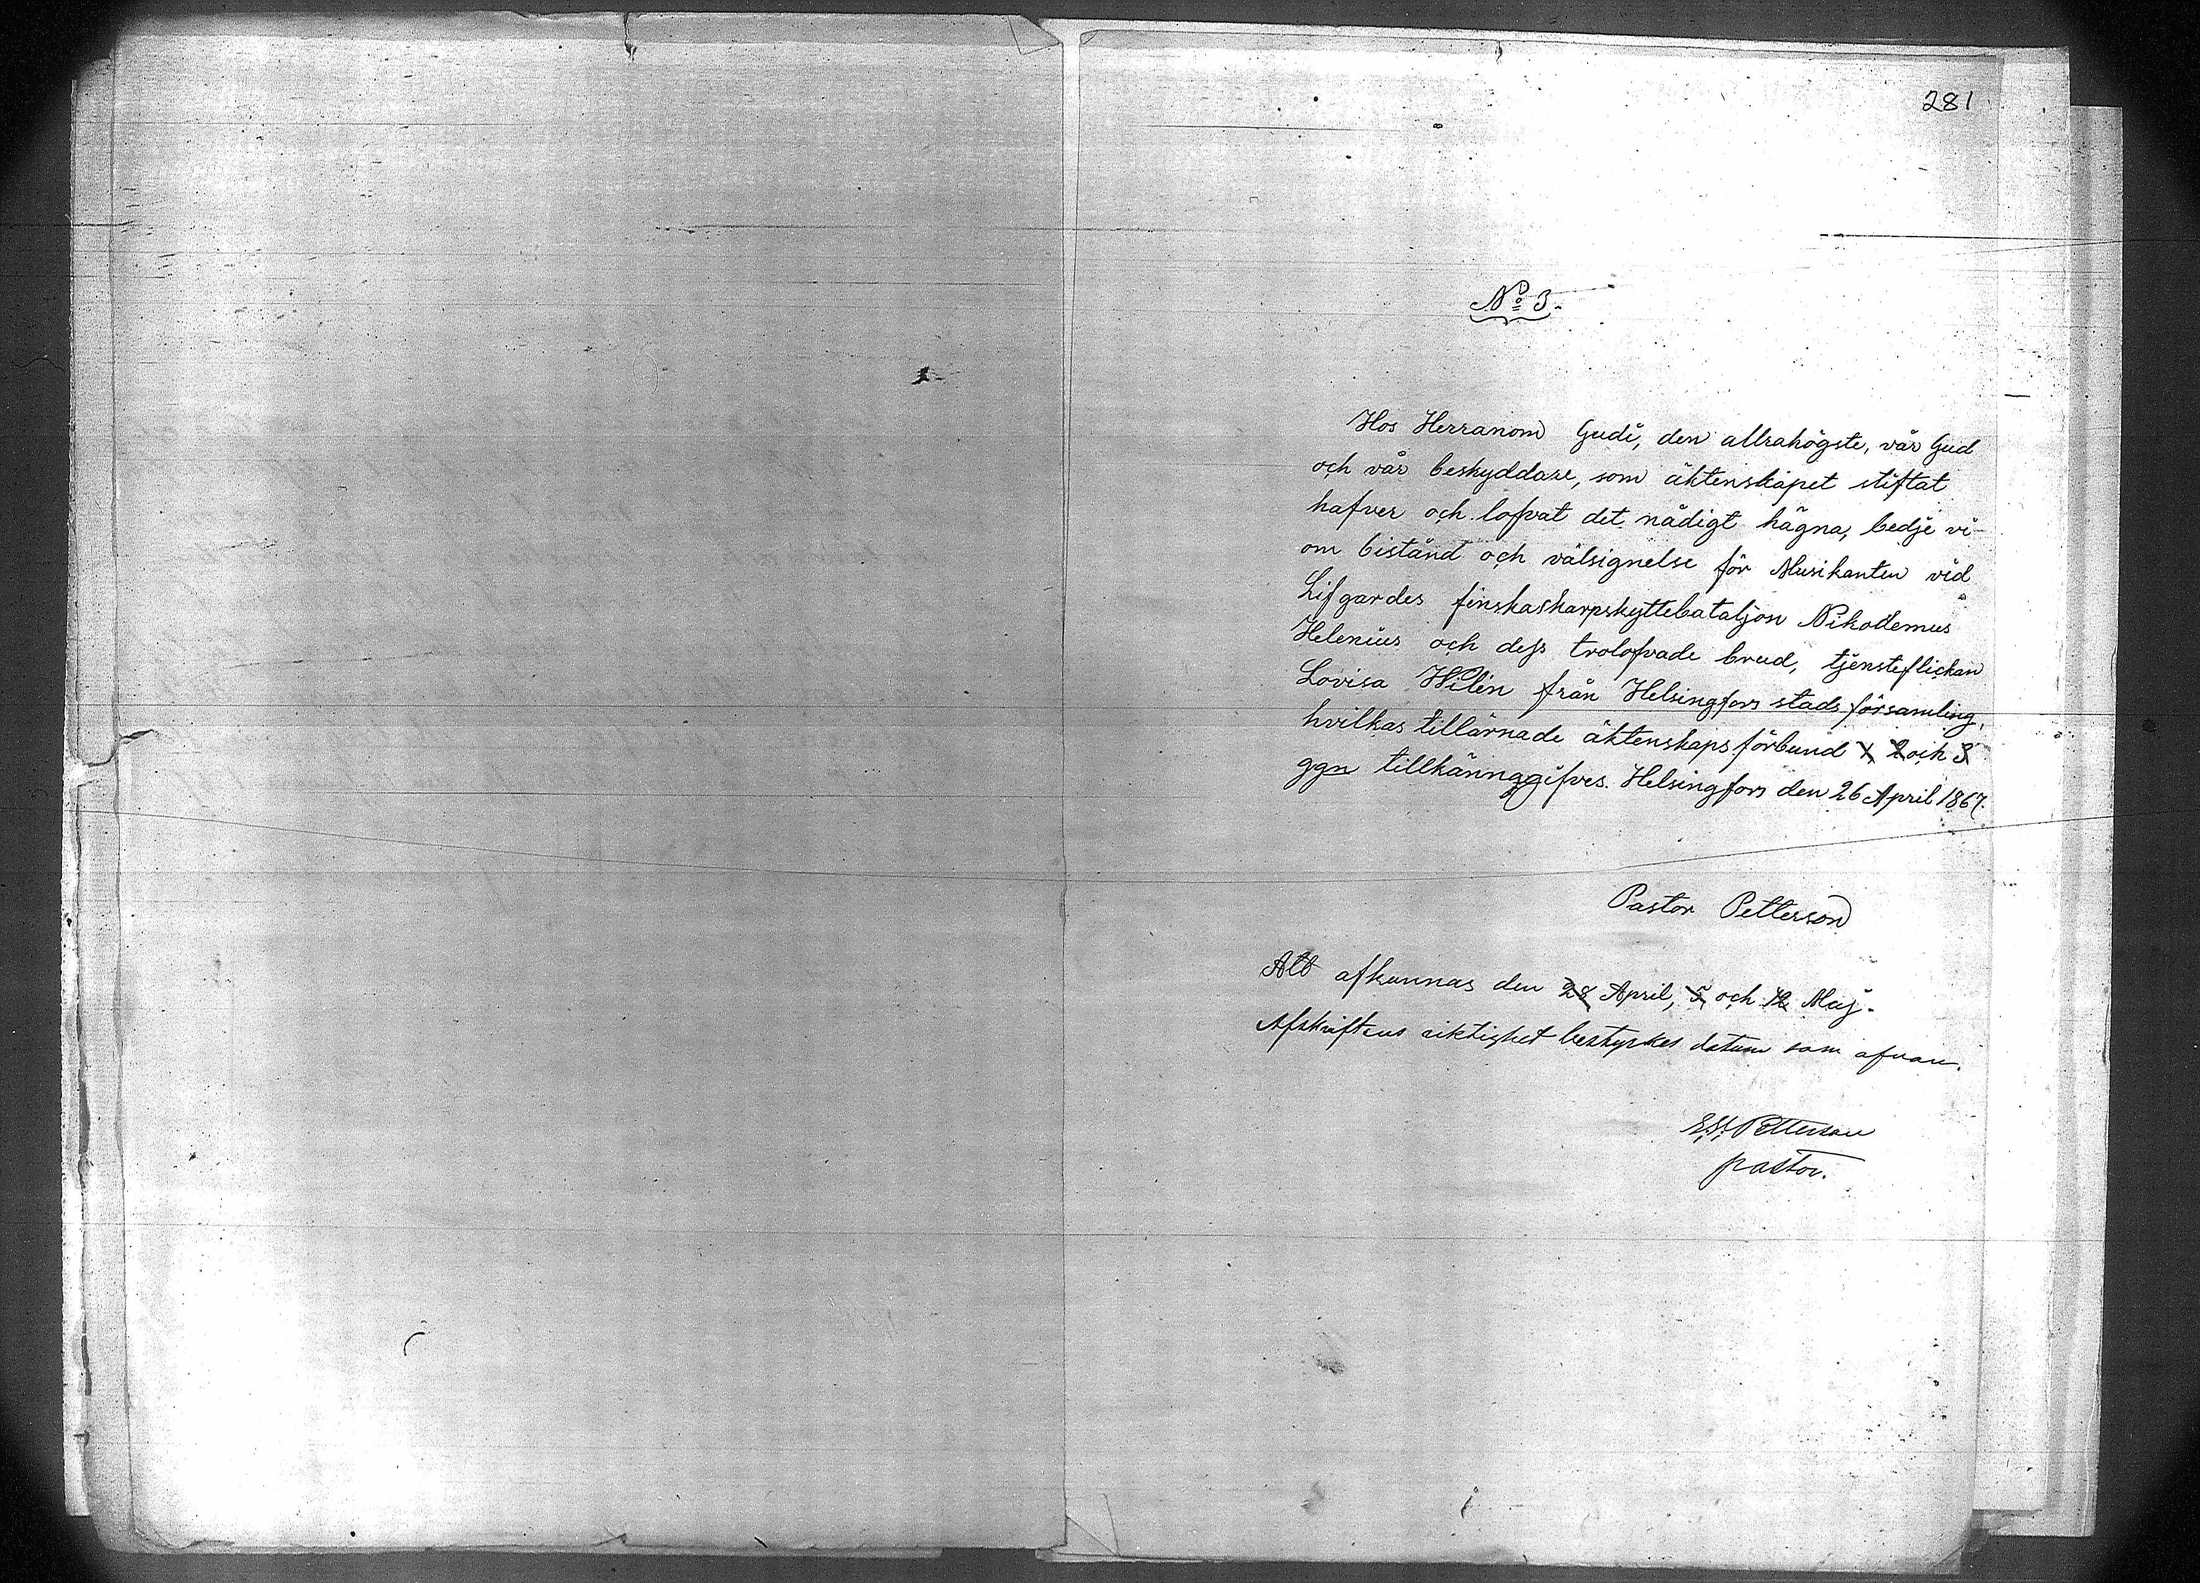 281
No 3.
Hos Herranom Gudi, den allrahögste, vår Gud
och vår beskyddare, som äktenskapet stiftat
hafver och lofvat det nådigt hägna, bedje vi
om bistånd och välsignelse för Musikanten vid
Lifgardes finskaskarpskyttebataljon Nikodemus
Helenius och dess trolofvade brud, tjensteflickan
Lovisa Wilén från Helsingfors stads församling,
hvilkas tillärnade äktenskapsförbund 1, 2 och 3
ggn tillkännagifves. Helsingfors den 26 April 1867.
Pastor Petterson
Att afkunnas den 28 April, 5 och 12 Maj.
Afskriftens riktighet bestyrkes datum som ofvan.
Petterson
pastor.